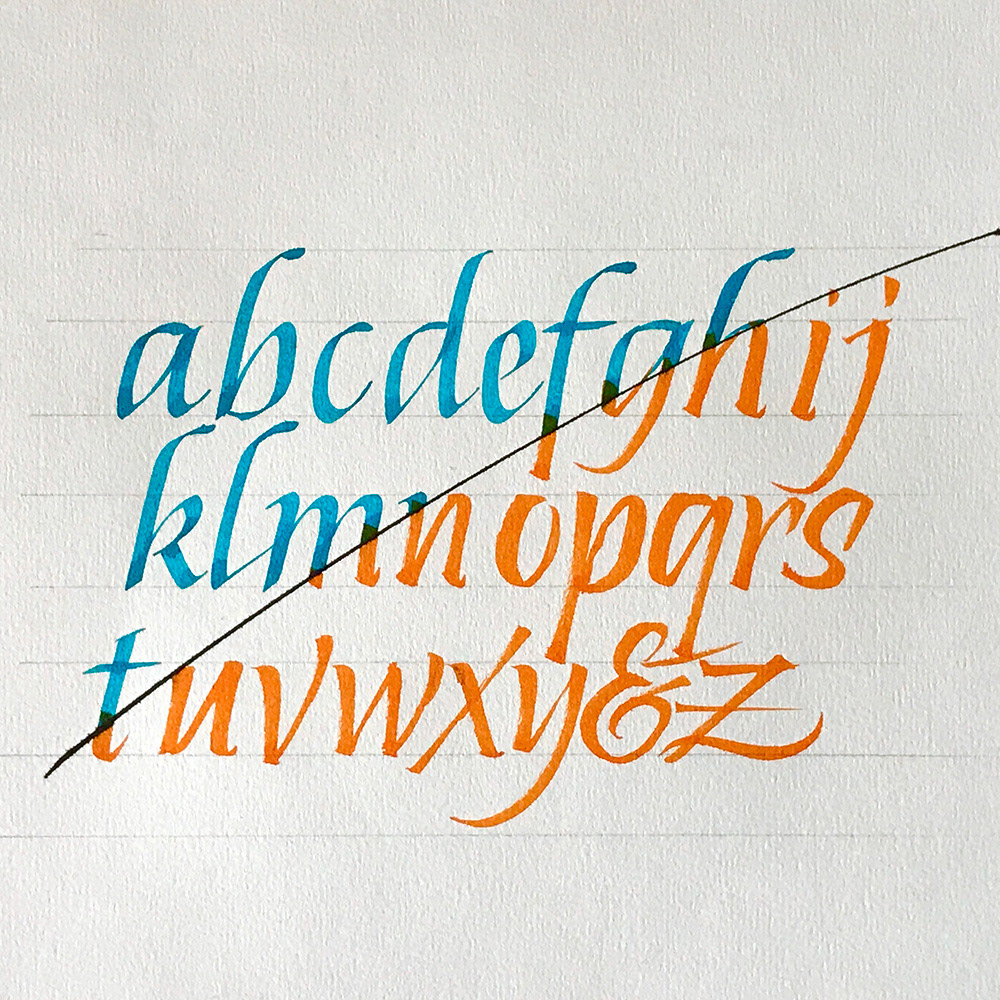 abcdefghij
klmnopqrs
tuvwxy&z